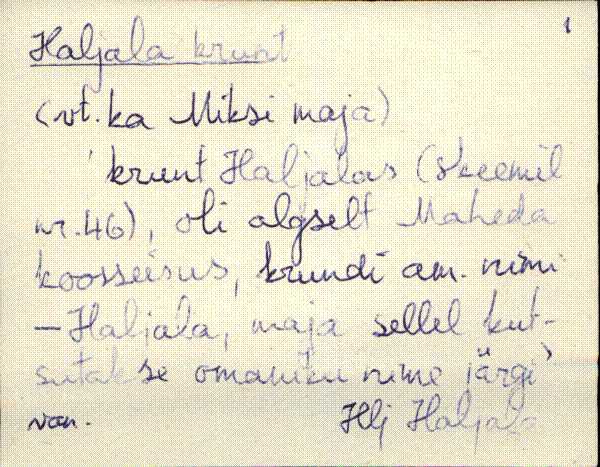 1
Haljala krunt
(vt. ka Miksi maja)
' krunt Haljalas (skeemil
nr. 46), oli algselt Maheda
koosseisus, krundi am. nimi
– Haljala, maja sellel kut-
sutakse omaniku nime järgi'
van. Hlj Haljala